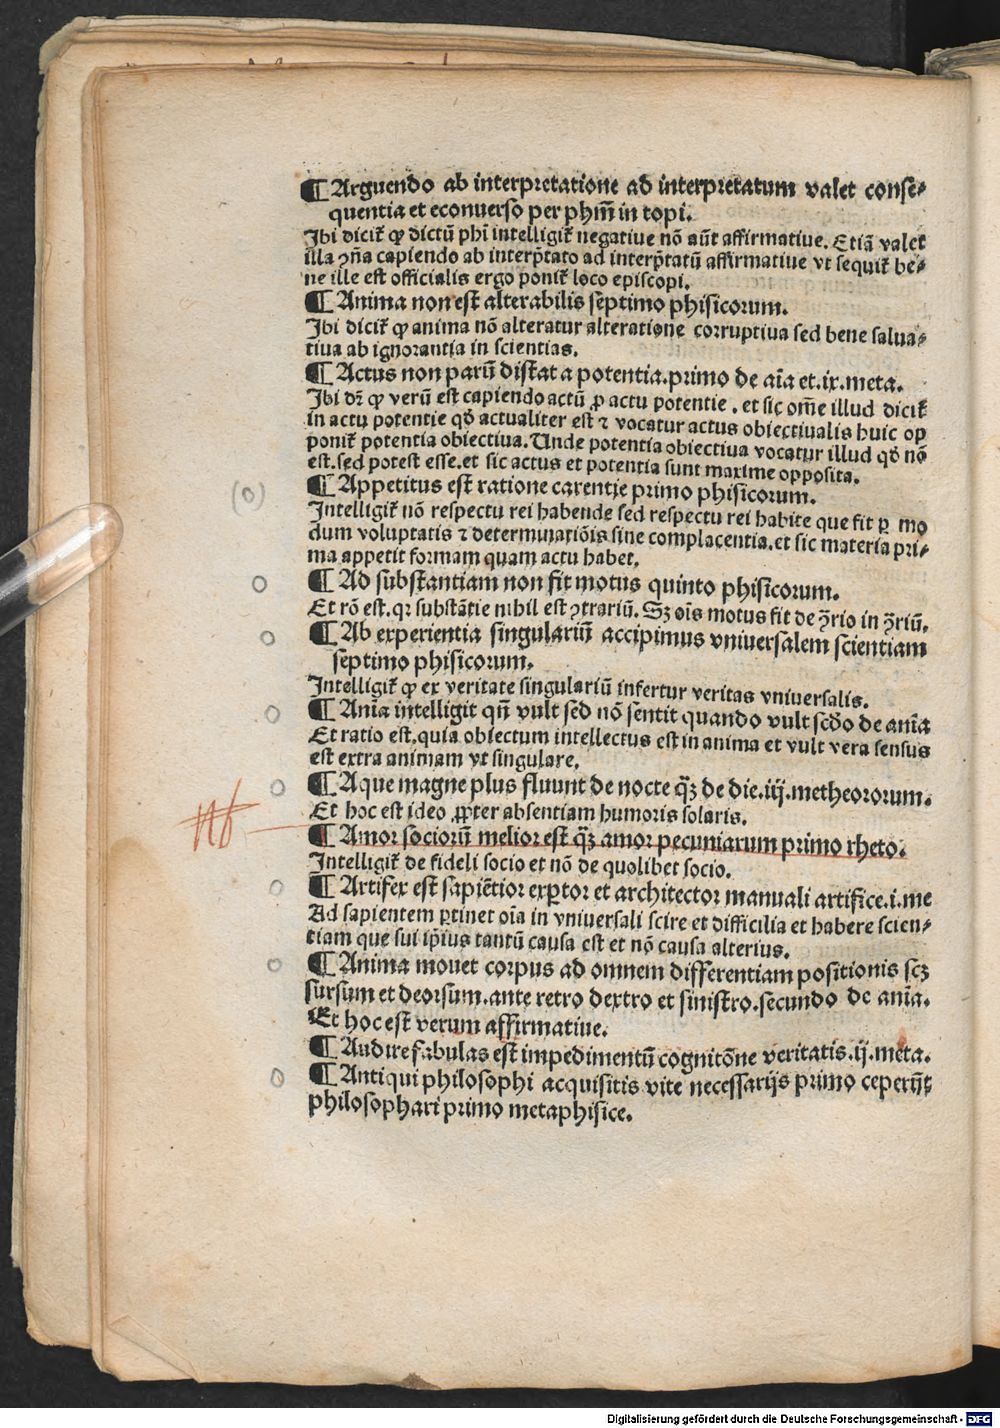 ¶ Arguendo ab interpretatione ad interpretatum valet conse⸗
quentia et econuerso per phm̄ in topi.
Ibi dicit᷑ ꝙ dictū phi intelligit᷑ negatiue nō aūt affirmatiue. Etiā valet
illa ꝯn̄a capiendo ab interp̄tato ad interp̄tatū affirmatiue vt sequit᷑ be⸗
ne ille est officialis ergo ponit᷑ loco episcopi.
¶ Anima non est alterabilis septimo phisicorum.
Ibi dicit᷑ ꝙ anima nō alteratur alteratione corruptiua sed bene salua⸗
tiua ab ignorantia in scientias.
¶ Actus non parū distat a potentia. primo de aīa et .ix. meta.
Ibi dz̄ ꝙ verū est capiendo actū ꝓ actu potentie . et sic om̄e illud dicit᷑
in actu potentie qd̄ actualiter est ⁊ vocatur actus obiectiualis huic op
ponit᷑ potentia obiectiua. Unde potentia obiectiua vocatur illud qd̄ nō
est. sed potest esse. et sic actus et potentia sunt maxime opposita.
¶ Appetitus est ratione carentie primo phisicorum.
Intelligit᷑ nō respectu rei habende sed respectu rei habite que fit ꝑ mo
dum voluptatis ⁊ determinatiōis sine complacentia. et sic materia pri⸗
ma appetit formam quam actu habet.
¶ Ad substantiam non fit motus quinto phisicorum.
Et rō est. qr substātie nihil est ꝯtrariū. Sꝫ oīs motus fit de ꝯ̄rio in ꝯ̄riū.
¶ Ab experientia singulariū accipimus vniuersalem scientiam
septimo phisicorum.
Intelligit᷑ ꝙ ex veritate singulariū infertur veritas vniuersalis.
¶ Anīa intelligit qn̄ vult sed nō sentit quando vult scd̄o de anīa
Et ratio est. quia obiectum intellectus est in anima et vult vera sensus
est extra animam vt singulare.
¶ Aque magne plus fluunt de nocte qꝫ̄ de die .iij. metheororum.
Et hoc est ideo ꝓpter absentiam humoris solaris.
Nb
¶ Amor sociorū melior est qꝫ̄ amor pecuniarum primo rheto.
Intelligit᷑ de fideli socio et nō de quolibet socio.
¶ Artifex est sapiētior exꝑtor et architector manuali artifice .i. me
Ad sapientem ꝑtinet oīa in vniuersali scire et difficilia et habere scien⸗
tiam que sui ip̄ius tantū causa est et nō causa alterius.
¶ Anima mouet corpus ad omnem differentiam positionis scꝫ
sursum et deorsum. ante retro dextro et sinistro. secundo de anīa.
Et hoc est verum affirmatiue.
¶ Audire fabulas est impedimentū cognitōne veritatis .ij. meta.
¶ Antiqui philosophi acquisitis vite necessarijs primo ceperūt
philosophari primo metaphisice.
Digitalisierung gefördert durch die Deutsche Forschungsgemeinschaft - DFG